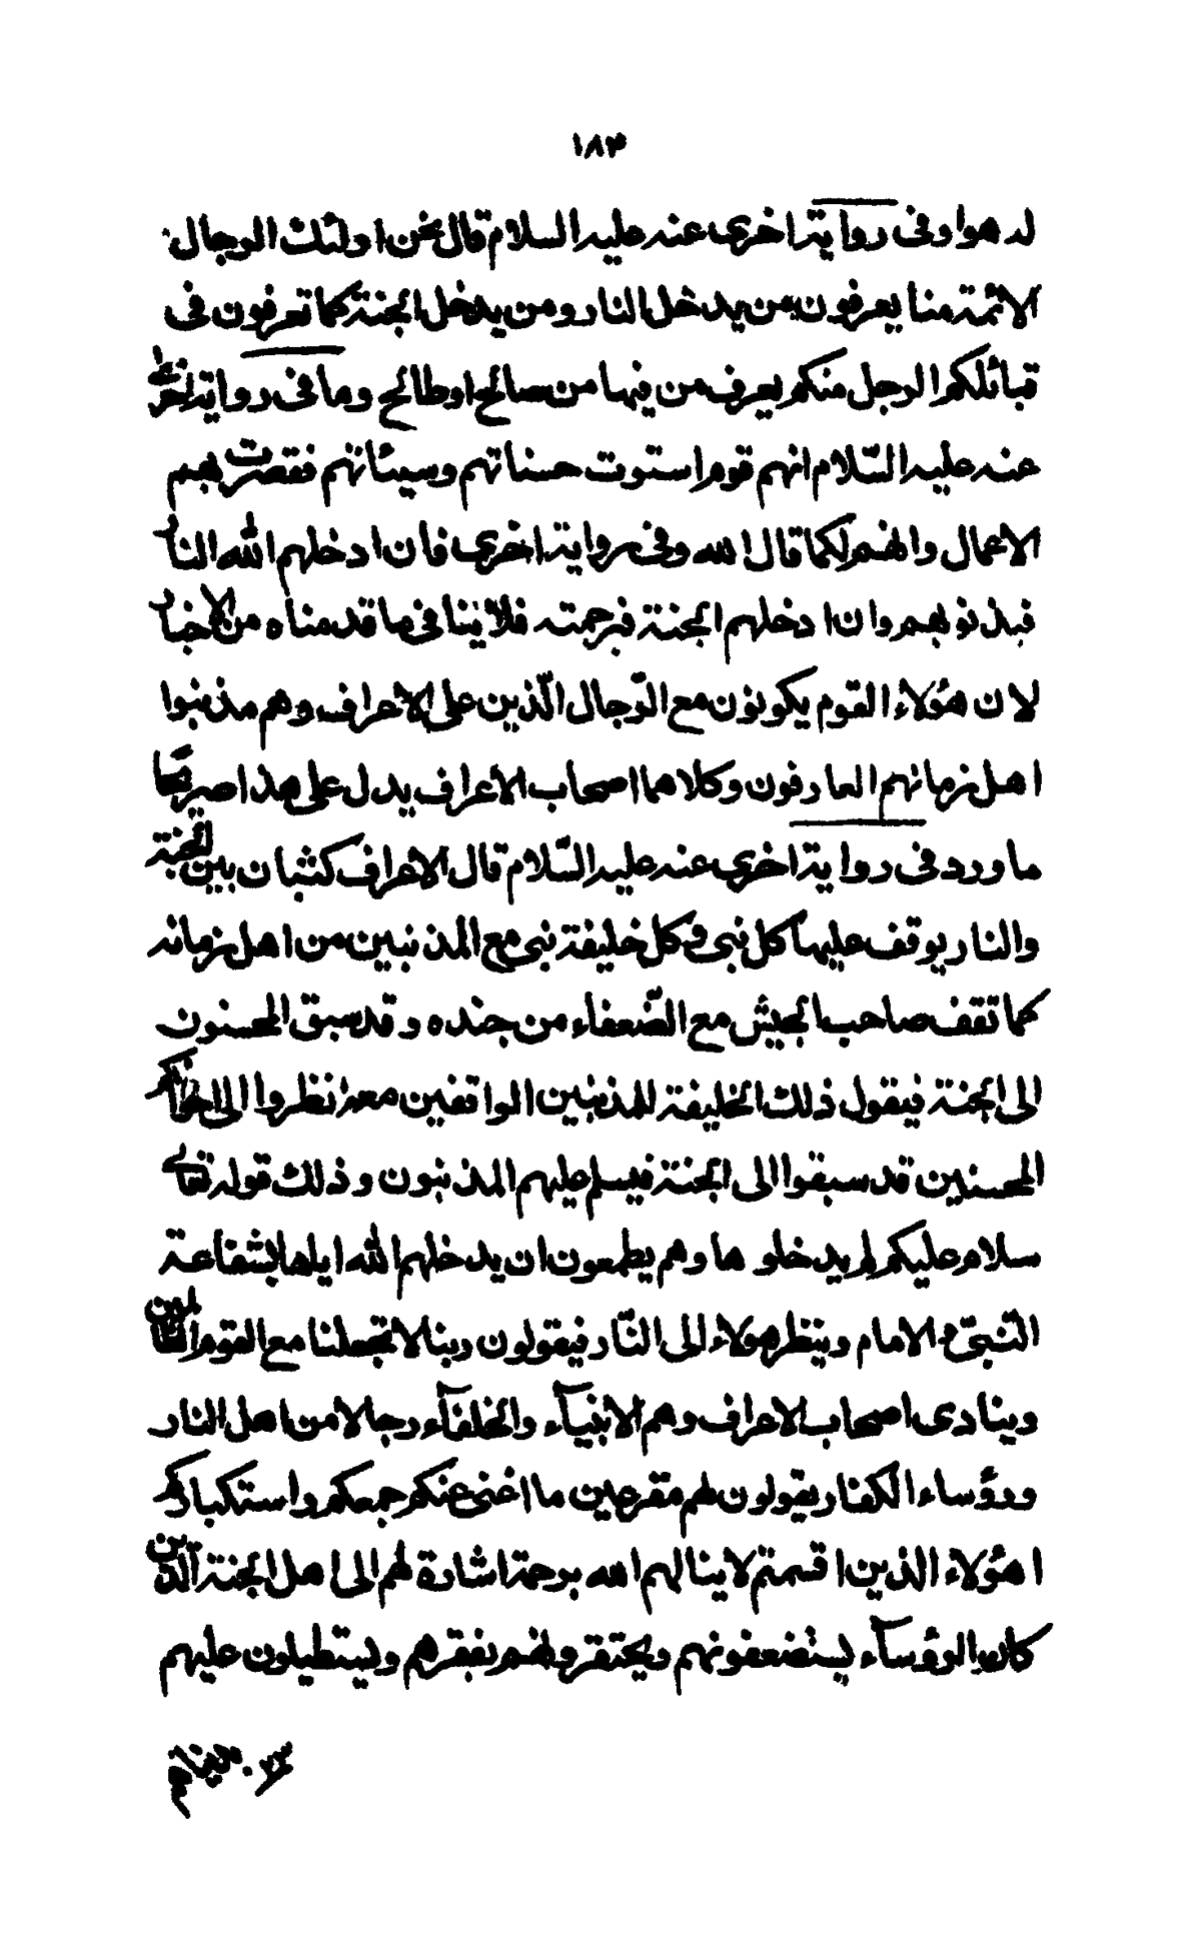 ١٨٣
له هوا وفی روایة اخری عنه علیه السلام قال نحن اولئك الرجال
الائمة منا یعرفون من یدخل النار ومن یدخل الجنة کما تعرفون فی
قبائلکم الرجل منکم یعرف من فیها من صالح اوطالح وما فی روایة اخری
عنه علیه السّلام انهم قوم استوت حسناتهم وسیئاتهم فقصرت بهم
الاعمال وانهم لکما قال الله وفی روایة اخری فان ادخلهم الله النار
فبذنوبهم وان ادخلهم الجنة فبرحمته فلاینافی ما قدمناه من الاخبار
لان هؤلاء القوم یکونون مع الرّجال الّذین علی الاعراف وهم مذنبوا
اهل زمانهم العارفون وکلاهما اصحاب الاعراف یدل علی هذا صریحا
ما ورد فی روایة اخری عنه علیه السّلام قال الاعراف کثبان بین الجنة
والنار یوقف علیها کل نبی وکل خلیفة نبی مع المذنبین من اهل زمانه
کما تقف صاحب الجیش مع الضّعفاء من جنده وقد سبق المحسنون
الی الجنة فیقول ذلك الخلیفة للمذنبین الواقفین معه انظروا الی اخوانکم
المحسنین قد سبقوا الی الجنة فیسلم علیهم المذنبون وذلك قوله تعالی
سلام علیکم لم یدخلوها وهم یطمعون ان یدخلهم الله ایاها بشفاعة
النّبیّ والامام وینظر هولاء الی النّار فیقولون ربنا لا تجعلنا مع القوم الظالمین
وینادی اصحاب الاعراف وهم الانبیآء والخلفآء رجالا من اهل النار
ورؤساء الکفار یقولون لهم مقرعین ما اغنی عنکم جمعکم واستکبارکم
اهؤلاء الذین اقسمتم لا ینالهم الله برحمة اشارة لهم الی اهل الجنة الّذین
کان الرؤسآء یستضعفونهم ویحتقرونهم بفقرهم ویستطیلون علیهم